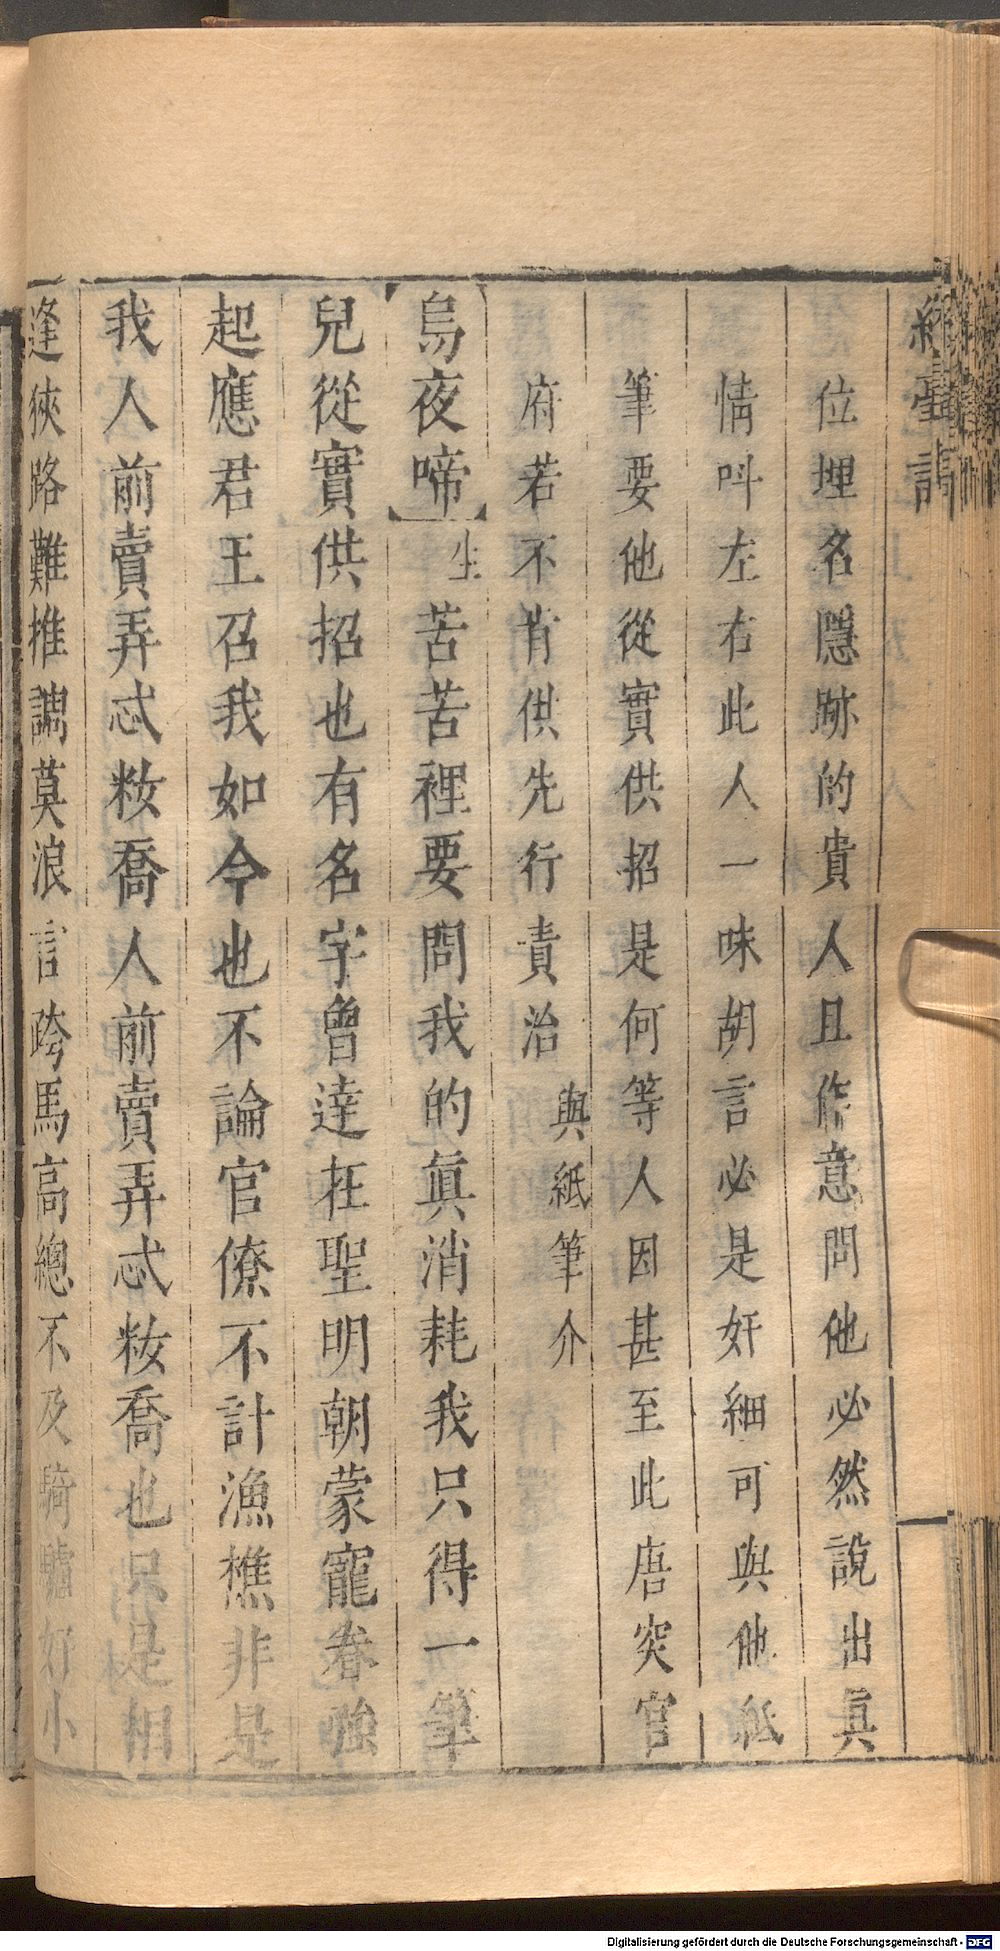 位埋名隱跡的貴人且作意問他必然說出眞
情呌左右此人一味胡言必是奸細可與他紙
筆要他從實供招是何等人因甚至此唐突官
府若不肯供先行責治與紙筆介
烏夜啼生苦苦裡要問我的眞消耗我只得一筆
兒從實供招也有名字曾達在聖明朝蒙寵眷強
起應君王召我如今也不論官僚不計漁樵非是
我人前賣弄忒粧喬人前賣弄忒粧喬也只是相
逢狹路難推調莫浪言跨馬高總不及騎驢好小
Digitalisierung gefördert durch die Deutsche Forschungsgemeinschaft - DFG